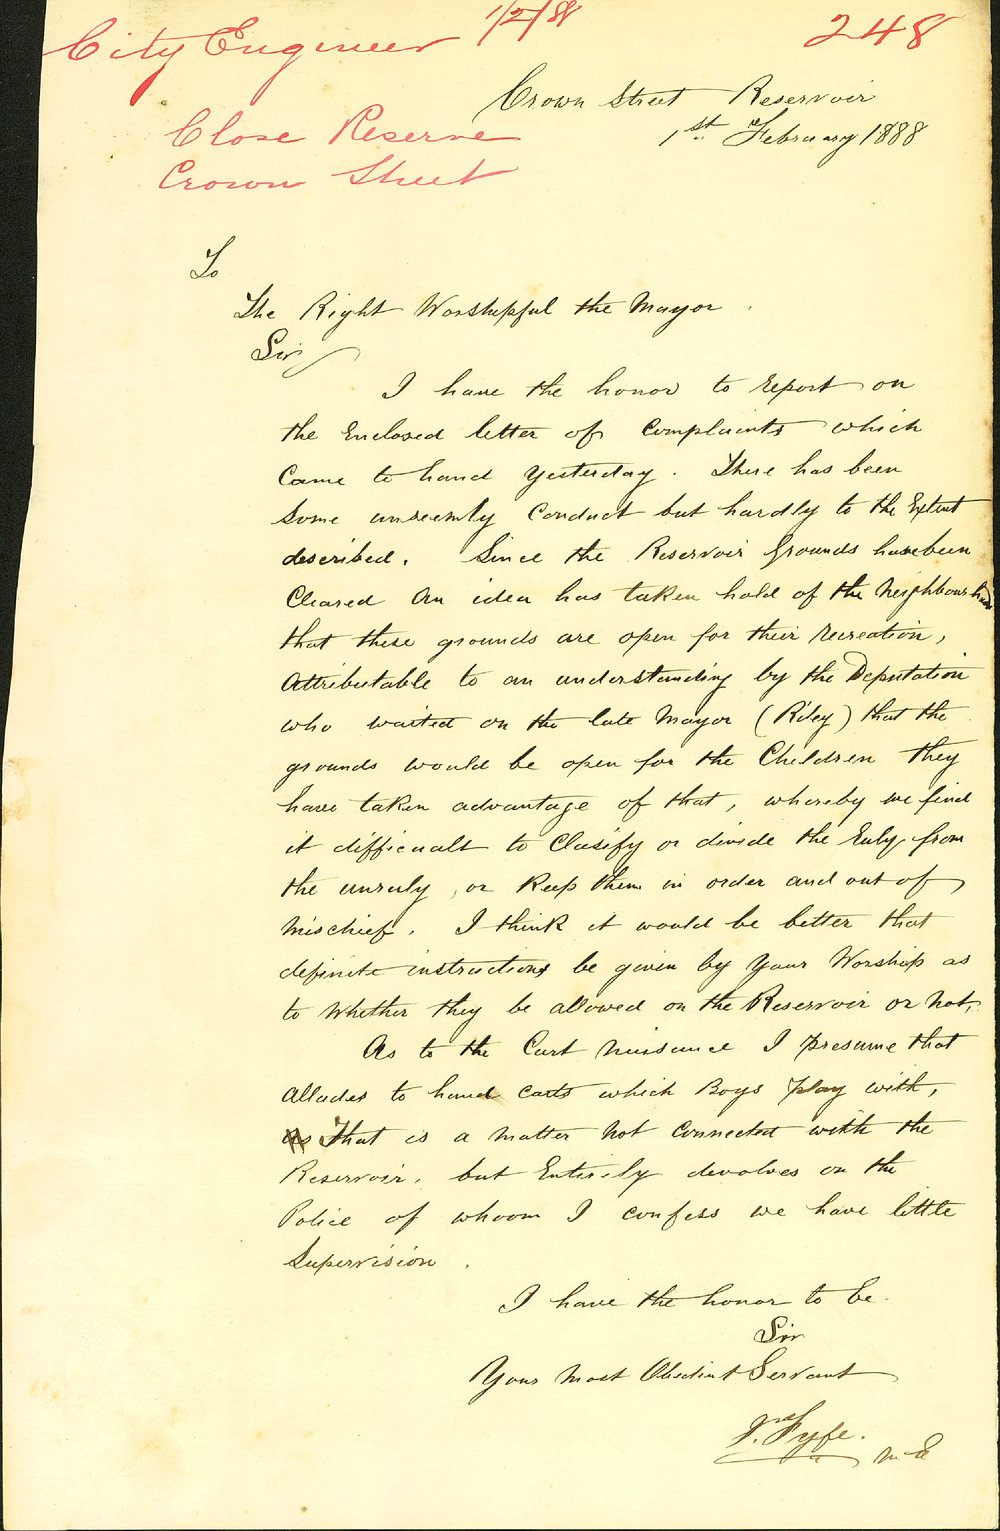 City Engineer 1/2/88 248
Crown Street Reservoir
1st February 1888
Close Reserve
Crown Street
To
The Right Worshipful the Mayor.
Sir
I have the honor to report on
the Enclosed letter of Complaints which
Came to hand Yesterday. There has been
Some unseemly Conduct but hardly to the Extent
described. Since the Reservoir Grounds have been
Cleared An idea has taken hold of the Neighbourhood
that these grounds are open for their recreation,
Attributable to an understanding by the Deputation
who waited on the late Mayor (Riley) that the
grounds would be open for the Children they
have taken advantage of that, whereby we find
it difficualt to Clasify or divide the Ruly from
the unruly, or Keep them in order and out of
Mischief. I think it would be better that
definite instructions be given by Your Worship as
to Whether they be allowed on the Reservoir or Not.
As to the Cart Nuisance I presume that
Alludes to hand carts which Boys play with,
As That is a matter Not Connected with the
Reservoir, but Entirely devolves on the
Police of whoom I confess we have little
Supervision.
I have the honor to be.
Sir
Your Most Obedient Servant
Fyfe.